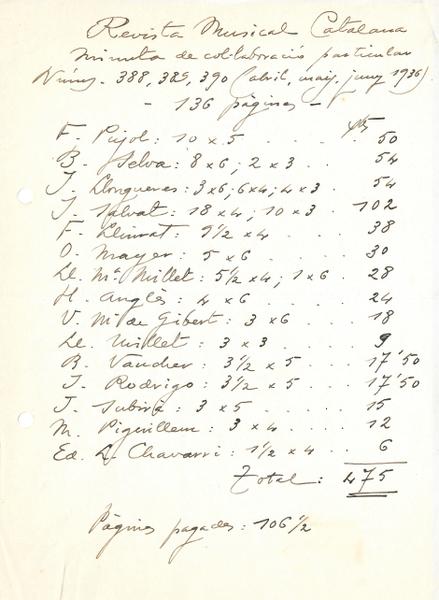 Revista Musical Catalana
Minuta de col·laboració particular
Núms. 388, 389, 390 (abril, maig, juny 1936)
- 136 pàgines -
Pts
F. Pujol: 10 x 5 . . . . 50
B. Selva: 8 x 6; 2 x 3 . . . 54
J. Llongueres: 3 x 6; 6 x 4; 4 x 3 . 54
J. Salvat: 18 x 4; 10 x 3 . 102
F. Lliurat: 9 1/2 x 4 . . . . 38
O. Mayer: 5 x 6 . . . . 30
Ll. Mª Millet: 5 1/2 x 4; 1 x 6 . 28
H. Anglès: 4 x 6 . . . . 24
V. Mª de Gibert: 3 x 6 . . . 18
Ll. Millet: 3 x 3 . . . . 9
R. Vaucher: 3 1/2 x 5 . . . 17'50
J. Rodrigo: 3 1/2 x 5 . . . 17'50
J. Subirà: 3 x 5 . . . . 15
M. Piguillem: 3 x 4 . . . 12
Ed. L. Chavarri: 1 1/2 x 4 . . 6
Total: 475
Pàgines pagades: 106 1/2